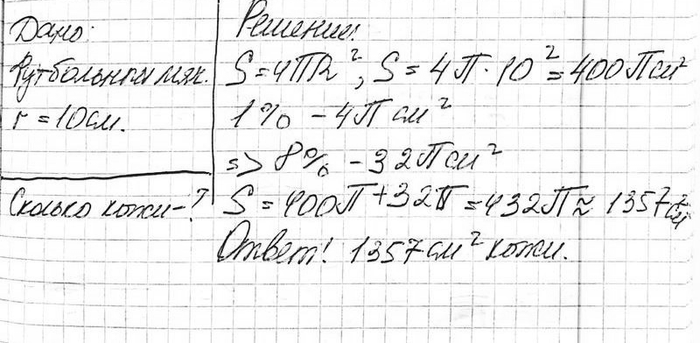 Дано:
Футбольный мяч.
r = 10 см.
Сколько кожи-?
Решение:
S = 4ПR², S = 4П · 10² = 400П см²
1% – 4П см²
=> 8% – 32П см²
S = 400П + 32П = 432П ≈ 1357 см²
Ответ! 1357 см² кожи.